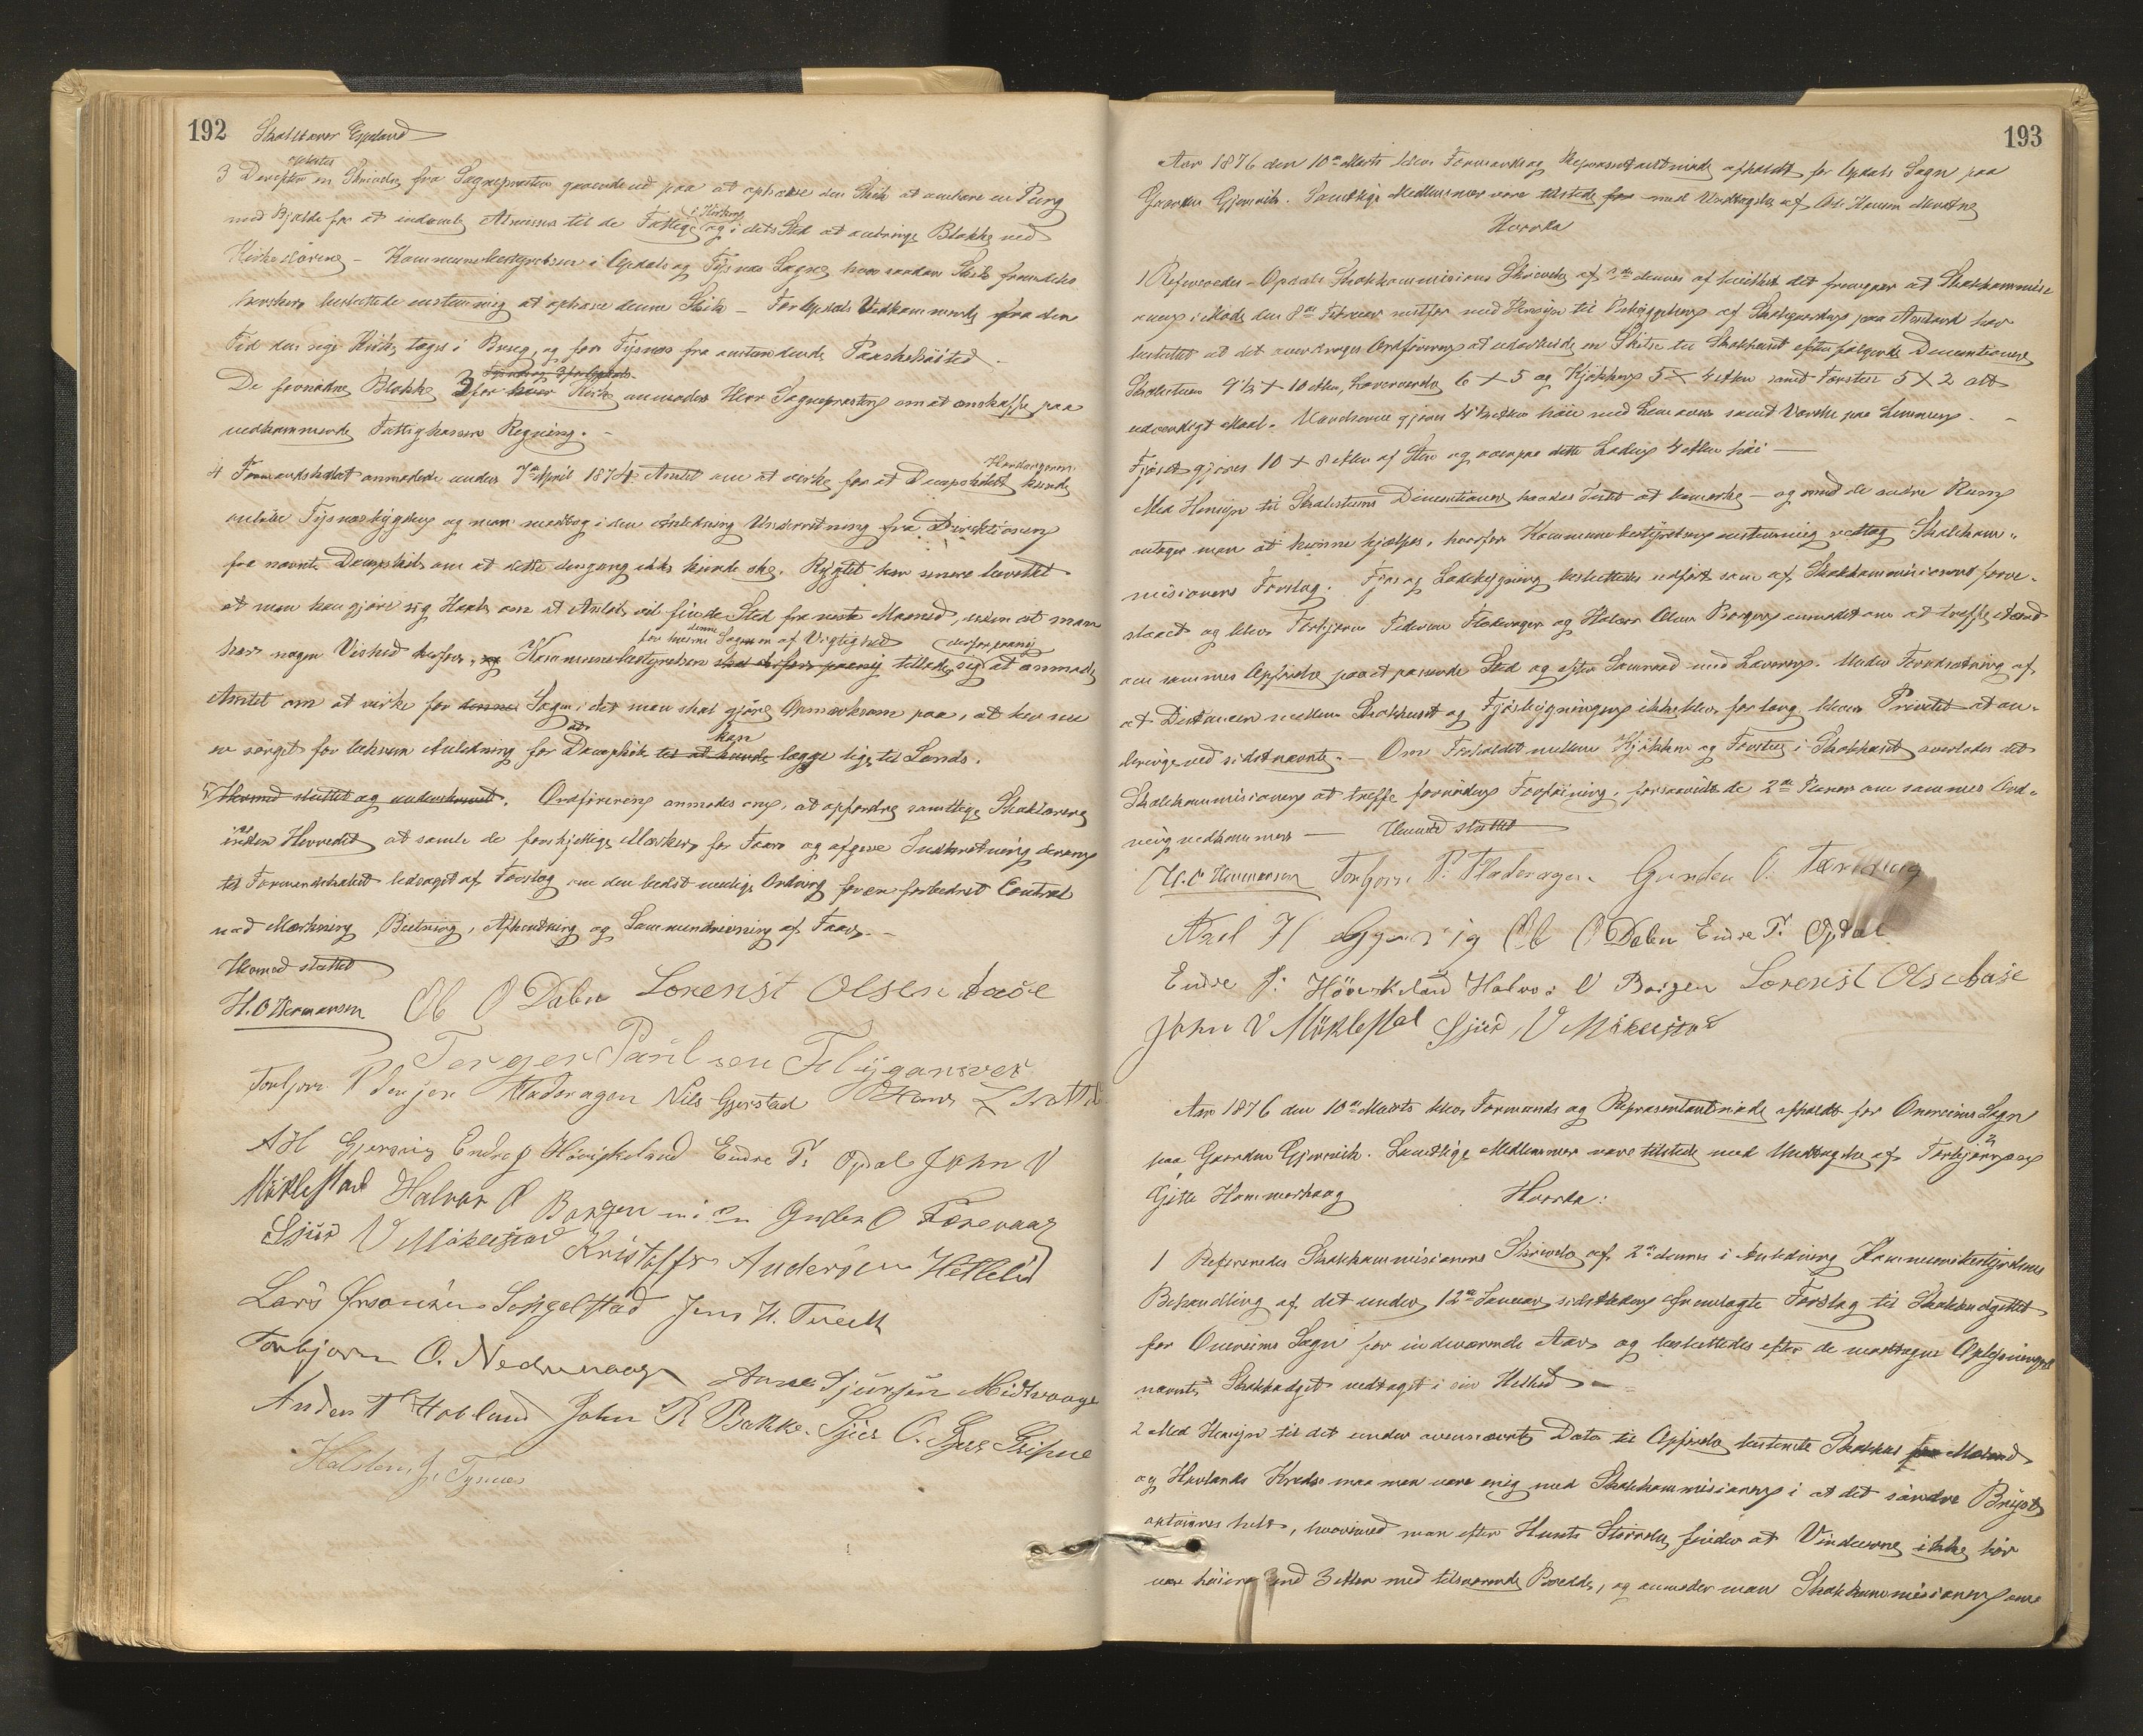 192 Skoletaxer Espeland
oplæstes
3 Derefter en Skrivelse fra Sognepresten gaaende ud paa at ophæve den Skik at ombære en Pung
med Bjælde for at indsamle Almisser til de Fattige i Kirkene og i dets Sted at anbringe Blokke ved
Kirkedørene - Kommunebestyrelsen i Opdals og Tysnes Sogne, hvor saadan Skik fremdeles
hersker, besluttede enstemmig at ophæve denne Skik - For Opdals Vedkommende fra den
Tid den nye Kirke tages i Brug, og for Tysnes fra anstundende Paaskehøited.
Tysnes og 2 for Opdals
De fornødne Blokke 3 for hver Kirke anmodes Herr Sognepresten om at anskaffe paa
vedkommende Fattigkasses Regning. -
4 Formandskabet anmodede under 7de April 1874 Amtet om at virke for at Dampskibet Hardangeren kunde
anløbe Tysnesbygden og man modtog i den Anledning Underretning fra Direktionen
for nævnte Dampskib om at dette dengang ikke kunde ske. Rygtet har senere bevirket
at man kan gjøre sig Haab om at Anløb vil finde Sted fra næste Maaned, uden at man
for denne Sogn er af Vigtighed derfor paany
har nogen Vished derfor, og Kommunebestyrelsen skal derfor paany tillade sig at anmode
Amtet om at virke for denne Sogn, idet man skal gjøre Opmærksom paa, at her nu
at kan
er sørget for bekvem Anledning for Dampskib til at kunde lægge lige til Lands.
5 Hermed sluttet og underskrevet. Ordføreren anmodes om, at opfordre samtlige Skoelærere
inden Herredet at samle de forskjellige Mærker for Faar og afgive Indberetning derom
til Formandskabet ledsaget af Forslag om den bedst mulige Ordning for en forbedret Control
med Mærkning, Beitning, Afhentning og Sammendrivning af Faar. -
Hermed sluttet
H. O Hermansen Ole O Dalen Lorenst Olsen Laase
Terger Paulsen Flygansvær
Torbjørn P Fladvagen Nils Gjerstad Hans L
A H Gjersvig Endre J Høviskeland Endre T. Opdal John V
Møklestad Halvor O Borgen Guden O Tærevaag
Sjur V Møklestad Kristoffer Andersen Hettelid
Lars Singelstad Jens H. Tveit
Torbjørn O. Nedrevaag Arne Sjursen Midtvaage
Anders T Hovland John R Bakke. Sjur O.
Halsten J. Tysnes
193
Aar 1876 den 10de Marts blev Formands og Repræsentantmøde afholdt for Opdals Sogn paa
Gaarden Gjersvik. Samtlige Medlemmer vare tilstede med Undtagelse af Ole Hansen
Hvorda
1 Refereredes Opdals Skolekommissions Skrivelse af 2de dennes af hvilket det fremgaar at Skolekommis
sionen i Møde den 8de Februar nestfør med Hensyn til Bebyggelsen af Skolegaarden paa Aarland har
besluttet at det overdrages Ordføreren at udarbeide en Skitse til Skolehuset efter følgende Dimentioner
Skolestuen 9 1/2 X 10 Alen, Læreværelse 6 X 5 og Kjøkken 5 X 4 Alen samt Forstue 5 X 2 alt
udvendigt Maal. Vandhuse gjøres 4 1/2 Alen høie med Lemmer samt Værelse paa Lemmen. -
Fjøset gjøres 10 X 8 Alen af Sten og ovenpaa dette Laden 4 Alen høi -
Med Hensyn til Skolestuens Dimentioner havdes Intet at bemærke - og med de andre Rum
antager man at kunne hjælpes, hvorfor Kommunebestyrelsen enstemmig vedtog Skolekom-
misionens Forslag. Fjøs og Ladebygning besluttedes udført som af Skolekommissionen fore-
slaaet og blev Torbjørn Pedersen Fladevagen og Halvor Olsen Borgen anmodet om at træffe Akkord
om sammes Opførelse paa et passende Sted og efter Samraad med Læreren. Under Forudsætning af,
at Distancen mellem Skolehuset og Fjøsbygningen ikke blev for lang, blev Privetet at an-
bringe ved sidstnævnte. - Om Forholdet mellem Kjøkken og Forstue i Skolehuset overlodes det
Skolekommissionen at træffe fornøden Forføining, forsaavidt de 2de Planer om sammes Ord-
ning vedkommer - Hermed sluttet
H. O Hermansen Torbjørn P. Fladevagen Gunden O. Tærevaag
Axel H Gjersvig Ole O Dalen Endre T. Opdal
Endre J: Høviskeland Halvor O Borgen Lorenst Olsen Laase
John V Møklestad Sjur V Møklestad
Aar 1876 den 10de Marts blev Formands og Repræsentantmøde afholdt for Onereims Sogn
paa Gaarden Gjersvik. Samtlige Medlemmer vare tilstede med Undtagelse af Torbjørn og
Gitle Hammerhaug Hvorda:
1 Refereredes Skolekommissionens Skrivelse af 2de dennes i Anledning Kommunebestyrelsens
Behandling af det under 12te Januar sidstleden fremlagte Forslag til Skolebudgettet
for Onereims Sogn for indeværende Aar og besluttedes efter de modtagne Oplysninger
nævnte Skolebudget vedtaget i sin Helhed -
2 Med Hensyn til det under ovennævnte Dato til Opførelse bestemte Skolehus for Maland
og Hovlands Kredse maa man være enig med Skolekommissionen i at det søndre Bryst
optøimres helt, hvorimod man efter Husets Størrelse finder at Vinduerne ikke bør
være høiere end 3 Alen med tilsvarende Bredde, og anmoder man Skolekommissionen om